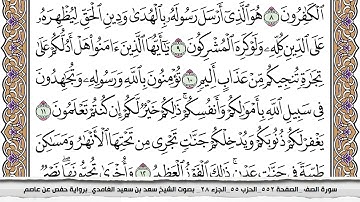 ٱلْكَٰفِرُونَ ٨ هُوَ ٱلَّذِىٓ أَرْسَلَ رَسُولَهُۥ بِٱلْهُدَىٰ وَدِينِ ٱلْحَقِّ لِيُظْهِرَهُۥ
عَلَى ٱلدِّينِ كُلِّهِۦ وَلَوْ كَرِهَ ٱلْمُشْرِكُونَ ٩ يَٰٓأَيُّهَا ٱلَّذِينَ ءَامَنُوا۟ هَلْ أَدُلُّكُمْ عَلَىٰ
تِجَٰرَةٍ تُنجِيكُم مِّنْ عَذَابٍ أَلِيمٍ ١٠ تُؤْمِنُونَ بِٱللَّهِ وَرَسُولِهِۦ وَتُجَٰهِدُونَ
فِى سَبِيلِ ٱللَّهِ بِأَمْوَٰلِكُمْ وَأَنفُسِكُمْ ۚ ذَٰلِكُمْ خَيْرٌ لَّكُمْ إِن كُنتُمْ تَعْلَمُونَ ١١
يَغْفِرْ لَكُمْ ذُنُوبَكُمْ وَيُدْخِلْكُمْ جَنَّٰتٍ تَجْرِى مِن تَحْتِهَا ٱلْأَنْهَٰرُ وَمَسَٰكِنَ
طَيِّبَةً فِى جَنَّٰتِ عَدْنٍ ۚ ذَٰلِكَ ٱلْفَوْزُ ٱلْعَظِيمُ ١٢ وَأُخْرَىٰ تُحِبُّونَهَا ۖ نَصْرٌ
سورة الصف _ الصفحة ٥٥٢ _ الحزب ٥٥ _ الجزء ٢٨ _ بصوت الشيخ سعد بن سعيد الغامدي _ برواية حفص عن عاصم